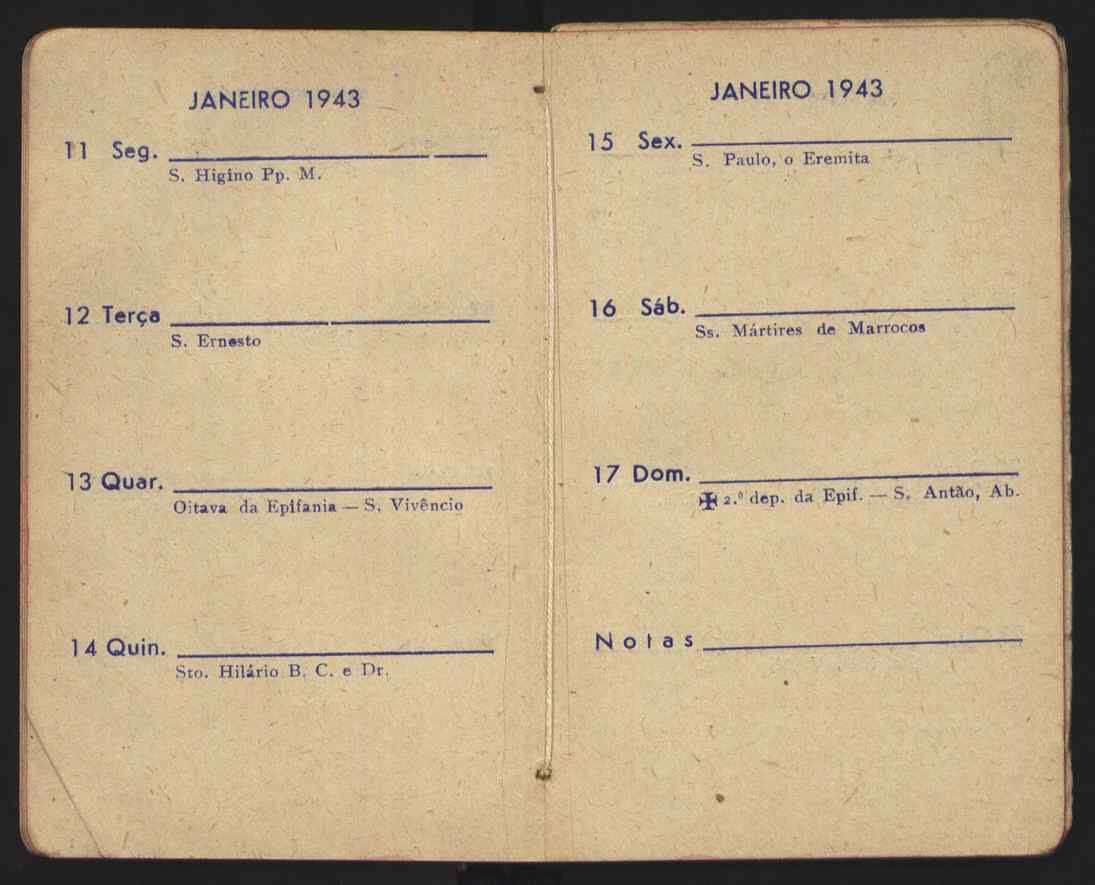 JANEIRO 1943
11 Seg.
S. Higino Pp. M.
12 Terça
S. Ernesto
13 Quar.
Oitava da Epifania — S. Vivêncio
14 Quin.
Sto. Hilário B. C. e Dr.
JANEIRO 1943
15 Sex.
S. Paulo, o Eremita
16 Sáb.
Ss. Mártires de Marrocos
17 Dom.
✠ 2.º dep. da Epif. — S. Antão, Ab.
Notas